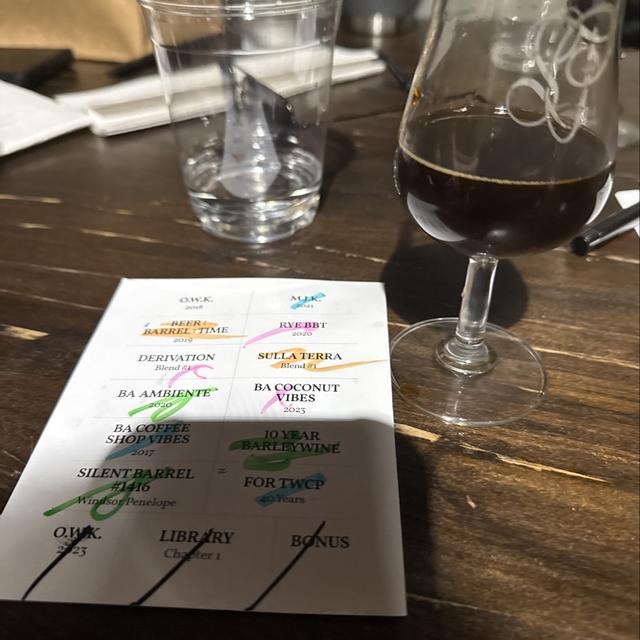 O.W.K.
2018
M.J.K.
2021
BEER:
BARREL:TIME
2019
RYE BBT
2020
DERIVATION
Blend #1
SULLA TERRA
Blend #1
BA AMBIENTE
2020
BA COCONUT
VIBES
2023
BA COFFEE
SHOP VIBES
2017
10 YEAR
BARLEYWINE
SILENT BARREL
#1416
Windsor Penelope
FOR TWCP
40 Years
O.W.K.
2023
LIBRARY
Chapter 1
BONUS